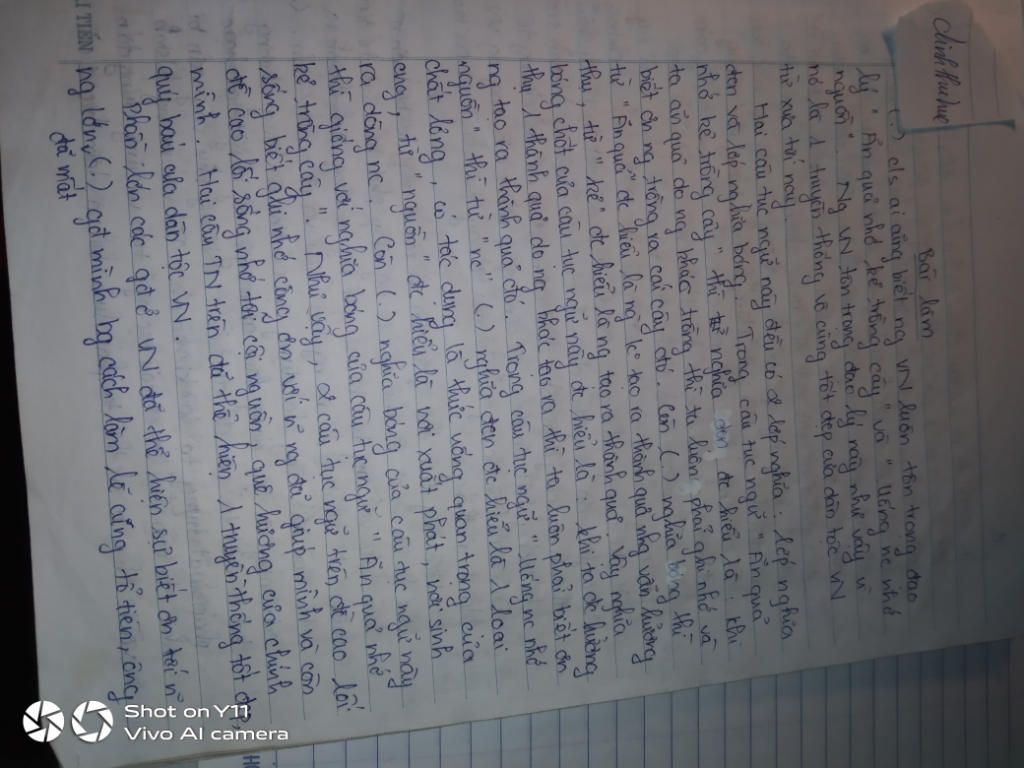 Chinhthuduc
Bài làm
(.) đ/s ai cũng biết ng VN luôn tôn trọng đạo
lý " Ăn quả nhớ kẻ trồng cây " và " Uống nc nhớ
nguồn ". Ng VN tôn trọng đạo lý này như vậy vì
nó là 1 truyền thống vô cùng tốt đẹp của dân tộc VN
từ xưa tới nay.
Hai câu tục ngữ này đều có 2 lớp nghĩa. lớp nghĩa
đen và lớp nghĩa bóng. Trong câu tục ngữ " Ăn quả
nhớ kẻ trồng cây " thì nghĩa đen đc hiểu là khi
ta ăn quả do ng khác trồng thì ta luôn phải ghi nhớ và
biết ơn ng trồng ra cái cây đó. Còn (.) nghĩa bóng thì
từ " Ăn quả " đc hiểu là ng k tạo ra thành quả nhg vẫn hưởng
thụ, từ " kẻ " đc hiểu là ng tạo ra thành quả. Vậy nghĩa
bóng chốt của câu tục ngữ này đc hiểu là : khi ta đc hưởng
thụ 1 thành quả do ng khác tạo ra thì ta luôn phải biết ơn
ng tạo ra thành quả đó. Trong câu tục ngữ " Uống nc nhớ
nguồn " thì từ " nc " (.) nghĩa đen đc hiểu là 1 loại
chất lỏng, có tác dụng là thức uống quan trọng của
cng, từ " nguồn " đc hiểu là nơi xuất phát, nơi sinh
ra dòng nc. Còn (.) nghĩa bóng của câu tục ngữ này
thì giống với nghĩa bóng của câu tục ngữ " Ăn quả nhớ
kẻ trồng cây ". Như vậy, 2 câu tục ngữ trên đề cao lối
sống biết ghi nhớ công ơn với n~ ng đã giúp mình và còn
đề cao lối sống nhớ tới cội nguồn quê hương của chính
mình. Hai câu TN trên đã thể hiện 1 truyền thống tốt đẹp
quý báu của dân tộc VN.
Phần lớn các gđ ở VN đã thể hiện sự biết ơn tới n~
ng lớn (.) gđ mình bg cách làm lễ cúng tổ tiên, ông
đã mất
Shot on Y11
Vivo AI camera